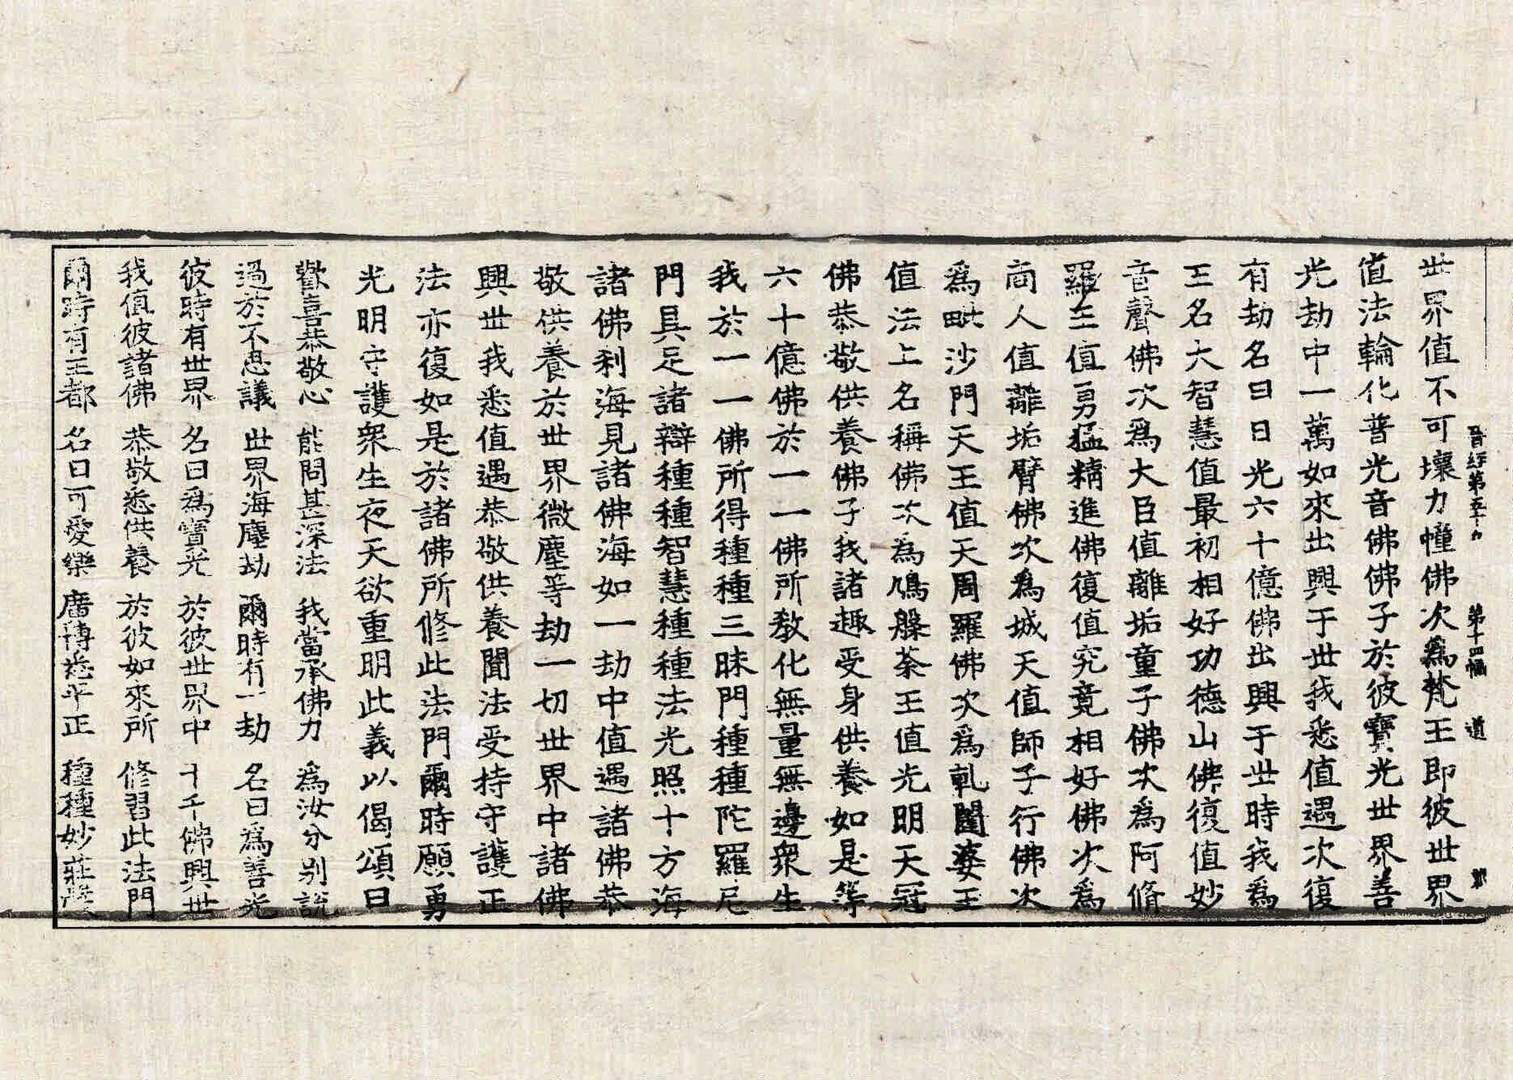 晉經第五十九 第十四幅 道
世界值不可壞力幢佛次爲梵王即彼世界
值法輪化普光音佛佛子於彼寶光世界善
光劫中一萬如來出興于世我悉值遇次復
有劫名曰日光六十億佛出興于世時我爲
王名大智慧值最初相好功德山佛復值妙
音聲佛次爲大臣值離垢童子佛次爲阿脩
羅王值勇猛精進佛復值究竟相好佛次爲
商人值離垢臂佛次爲城天值師子行佛次
爲毗沙門天王值天周羅佛次爲乹闥婆王
值法上名稱佛次爲鳩槃荼王值光明天冠
佛恭敬供養佛子我諸趣受身供養如是等
六十億佛於一一佛所教化無量無邊衆生
我於一一佛所得種種三昧門種種陀羅尼
門具足諸辯種種智慧種種法光照十方海
諸佛刹海見諸佛海如一劫中值遇諸佛恭
敬供養於世界微塵等劫一切世界中諸佛
興世我悉值遇恭敬供養聞法受持守護正
法亦復如是於諸佛所修此法門爾時願勇
光明守護衆生夜天欲重明此義以偈頌曰
歡喜恭敬心 能問甚深法 我當承佛力 爲汝分别説
過於不思議 世界海塵劫 爾時有一劫 名曰爲善光
彼時有世界 名曰爲寶光 於彼世界中 十千佛興世
我值彼諸佛 恭敬悉供養 於彼如來所 修習此法門
爾時有王都 名曰可愛樂 廣博悉平正 種種妙莊嚴